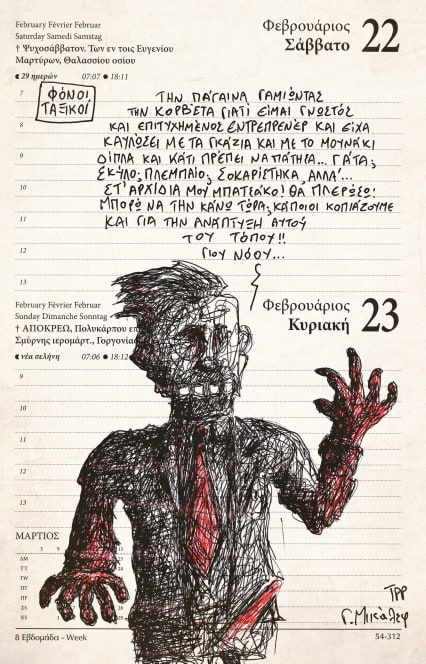 February Février Februar
Saturday Samedi Samstag
† Ψυχοσάββατον. Των εν τοις Ευγενίου
Μαρτύρων, Θαλασσίου οσίου
29 ημερών 07:07 18:11
Φεβρουάριος
Σάββατο 22
ΦΟΝΟΙ
ΤΑΞΙΚΟΙ
ΤΗΝ ΠΑΓΑΙΝΑ ΓΑΜΙΩΝΤΑΣ
ΤΗΝ ΚΟΡΒΕΤΑ ΓΙΑΤΙ ΕΙΜΑΙ ΓΝΩΣΤΟΣ
ΚΑΙ ΕΠΙΤΥΧΗΜΕΝΟΣ ΕΝΤΡΕΠΡΕΝΕΡ ΚΑΙ ΕΙΧΑ
ΚΑΥΛΩΣΕΙ ΜΕ ΤΑ ΓΚΑΖΙΑ ΚΑΙ ΜΕ ΤΟ ΜΟΥΝΑΚΙ
ΔΙΠΛΑ ΚΑΙ ΚΑΤΙ ΠΡΕΠΕΙ ΝΑ ΠΑΤΗΣΑ... ΓΑΤΑ;
ΣΚΥΛΟ; ΠΛΕΜΠΑΙΟ; ΣΟΚΑΡΙΣΤΗΚΑ ΑΛΛΑ'...
ΣΤ' ΑΡΧΙΔΙΑ ΜΟΥ ΜΠΑΤΣΑΚΟ! ΘΑ ΠΛΕΡΩΣΩ!
ΜΠΟΡΩ ΝΑ ΤΗΝ ΚΑΝΩ ΤΩΡΑ; ΚΑΠΟΙΟΙ ΚΟΠΙΑΖΟΥΜΕ
ΚΑΙ ΓΙΑ ΤΗΝ ΑΝΑΠΤΥΞΗ ΑΥΤΟΥ
ΤΟΥ ΤΟΠΟΥ!!
ΓΙΟΥ ΝΟΟΥ...
7
8
9
10
11
12
13
February Février Februar
Sunday Dimanche Sonntag
† ΑΠΟΚΡΕΩ, Πολυκάρπου
Σμύρνης ιερομάρτ., Γοργονίας
νέα σελήνη 07:06 18:12
Φεβρουάριος
Κυριακή 23
9
10
11
12
13
ΜΑΡΤΙΟΣ
3
ΔΜ
ΤΤ
TW
ΠΤ
ΠF
ΣS
ΚS
ΤΡΡ
8 Εβδομάδα - Week
54-312